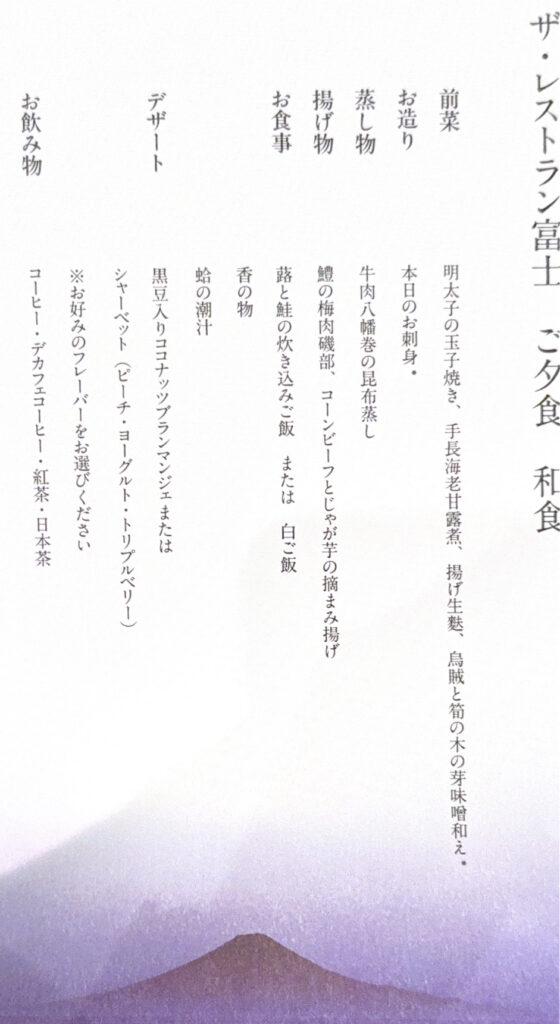 ザ・レストラン富士　ご夕食　和食
前菜　明太子の玉子焼き、手長海老甘露煮、揚げ生麩、烏賊と筍の木の芽味噌和え・
お造り　本日のお刺身・
蒸し物　牛肉八幡巻の昆布蒸し
揚げ物　鱧の梅肉磯部、コーンビーフとじゃが芋の摘まみ揚げ
お食事　蕗と鮭の炊き込みご飯　または　白ご飯
香の物
蛤の潮汁
デザート　黒豆入りココナッツブランマンジェ または
シャーベット（ピーチ・ヨーグルト・トリプルベリー）
※お好みのフレーバーをお選びください
お飲み物　コーヒー・デカフェコーヒー・紅茶・日本茶